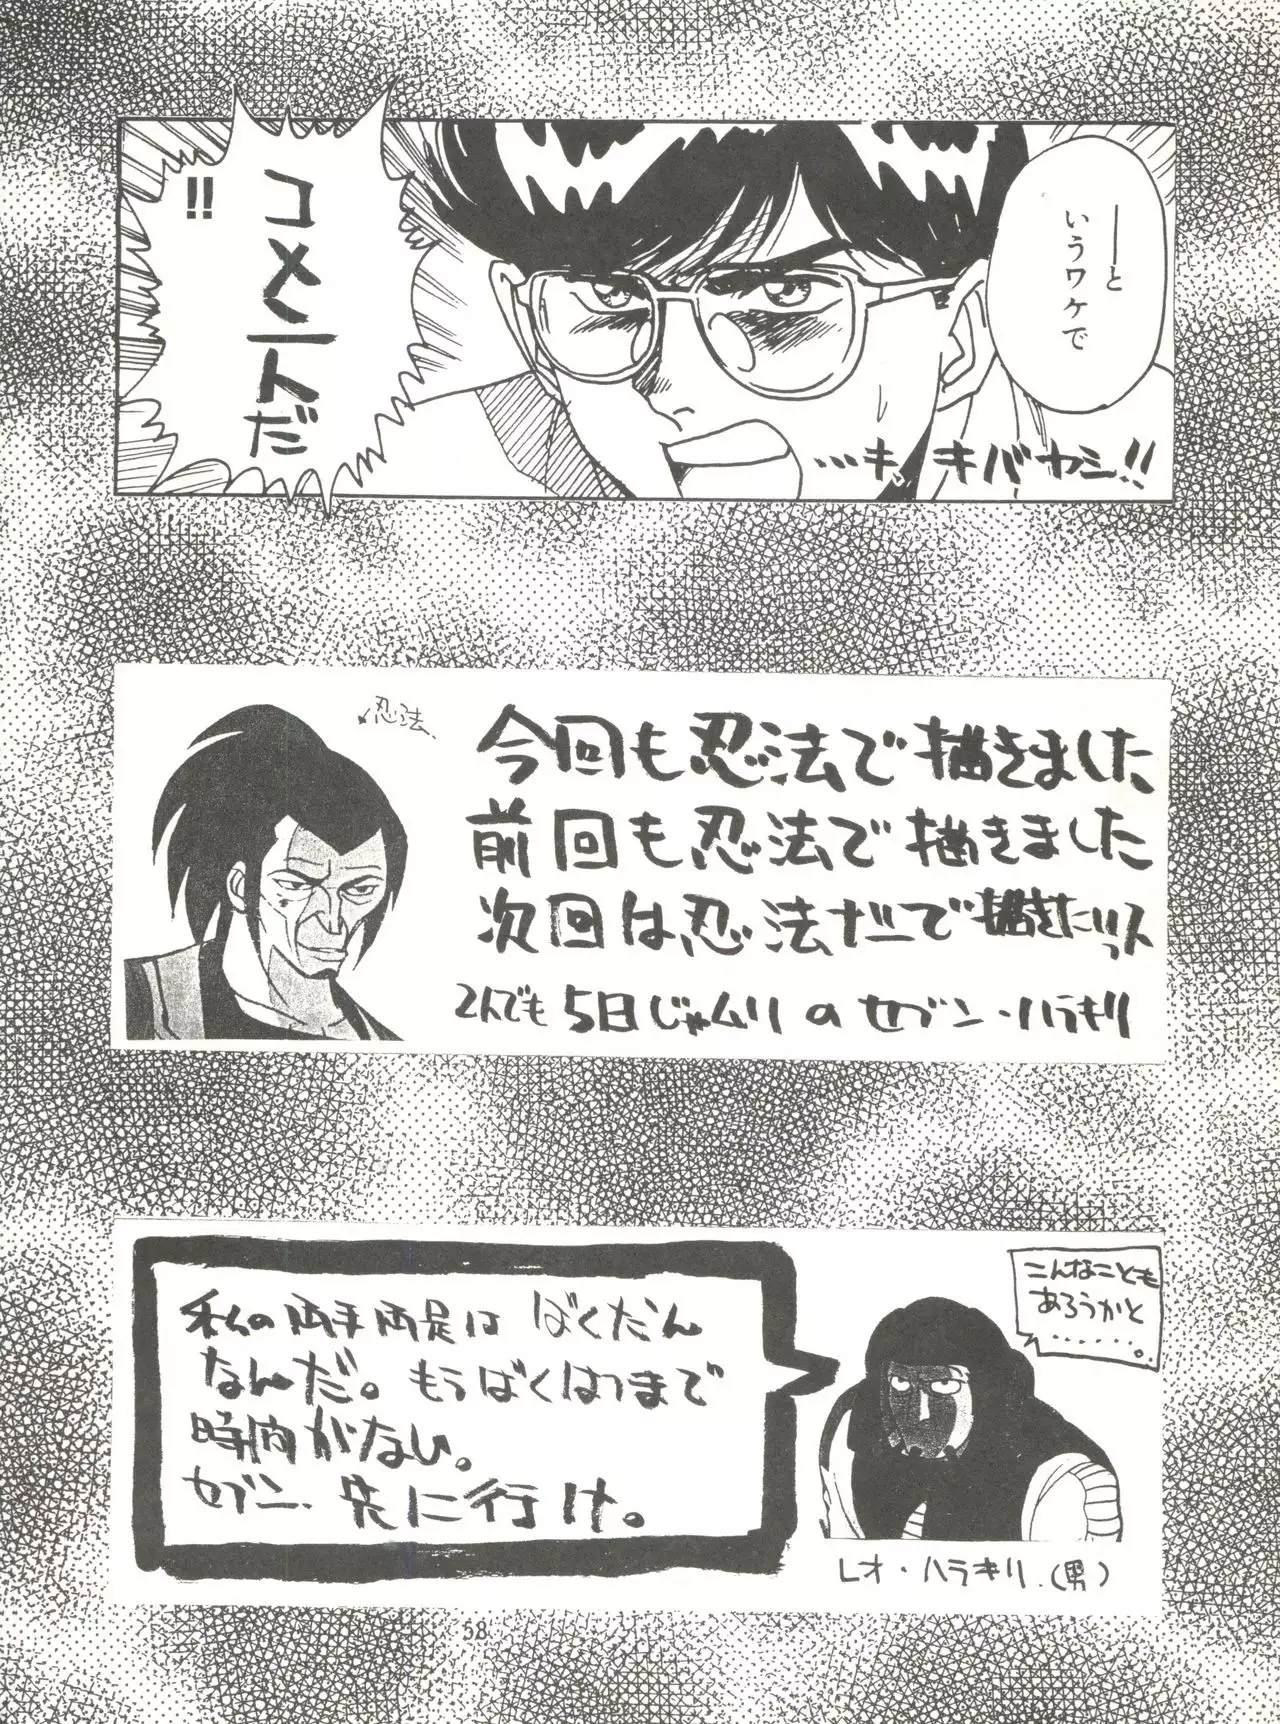 ──と
いうワケで
…キ、キバヤシ!!
コメントだ
!!
忍法
今回も忍法で描きました
前回も忍法で描きました
次回は忍法だーで描きたいっス
2んでも5日じゃムリのセブン・ハラキリ
こんなことも
あろうかと
……。
私の両手両足はばくだん
なんだ。もうばくはつまで
時間がない。
セブン、先に行け。
レオ・ハラキリ.(男)
58